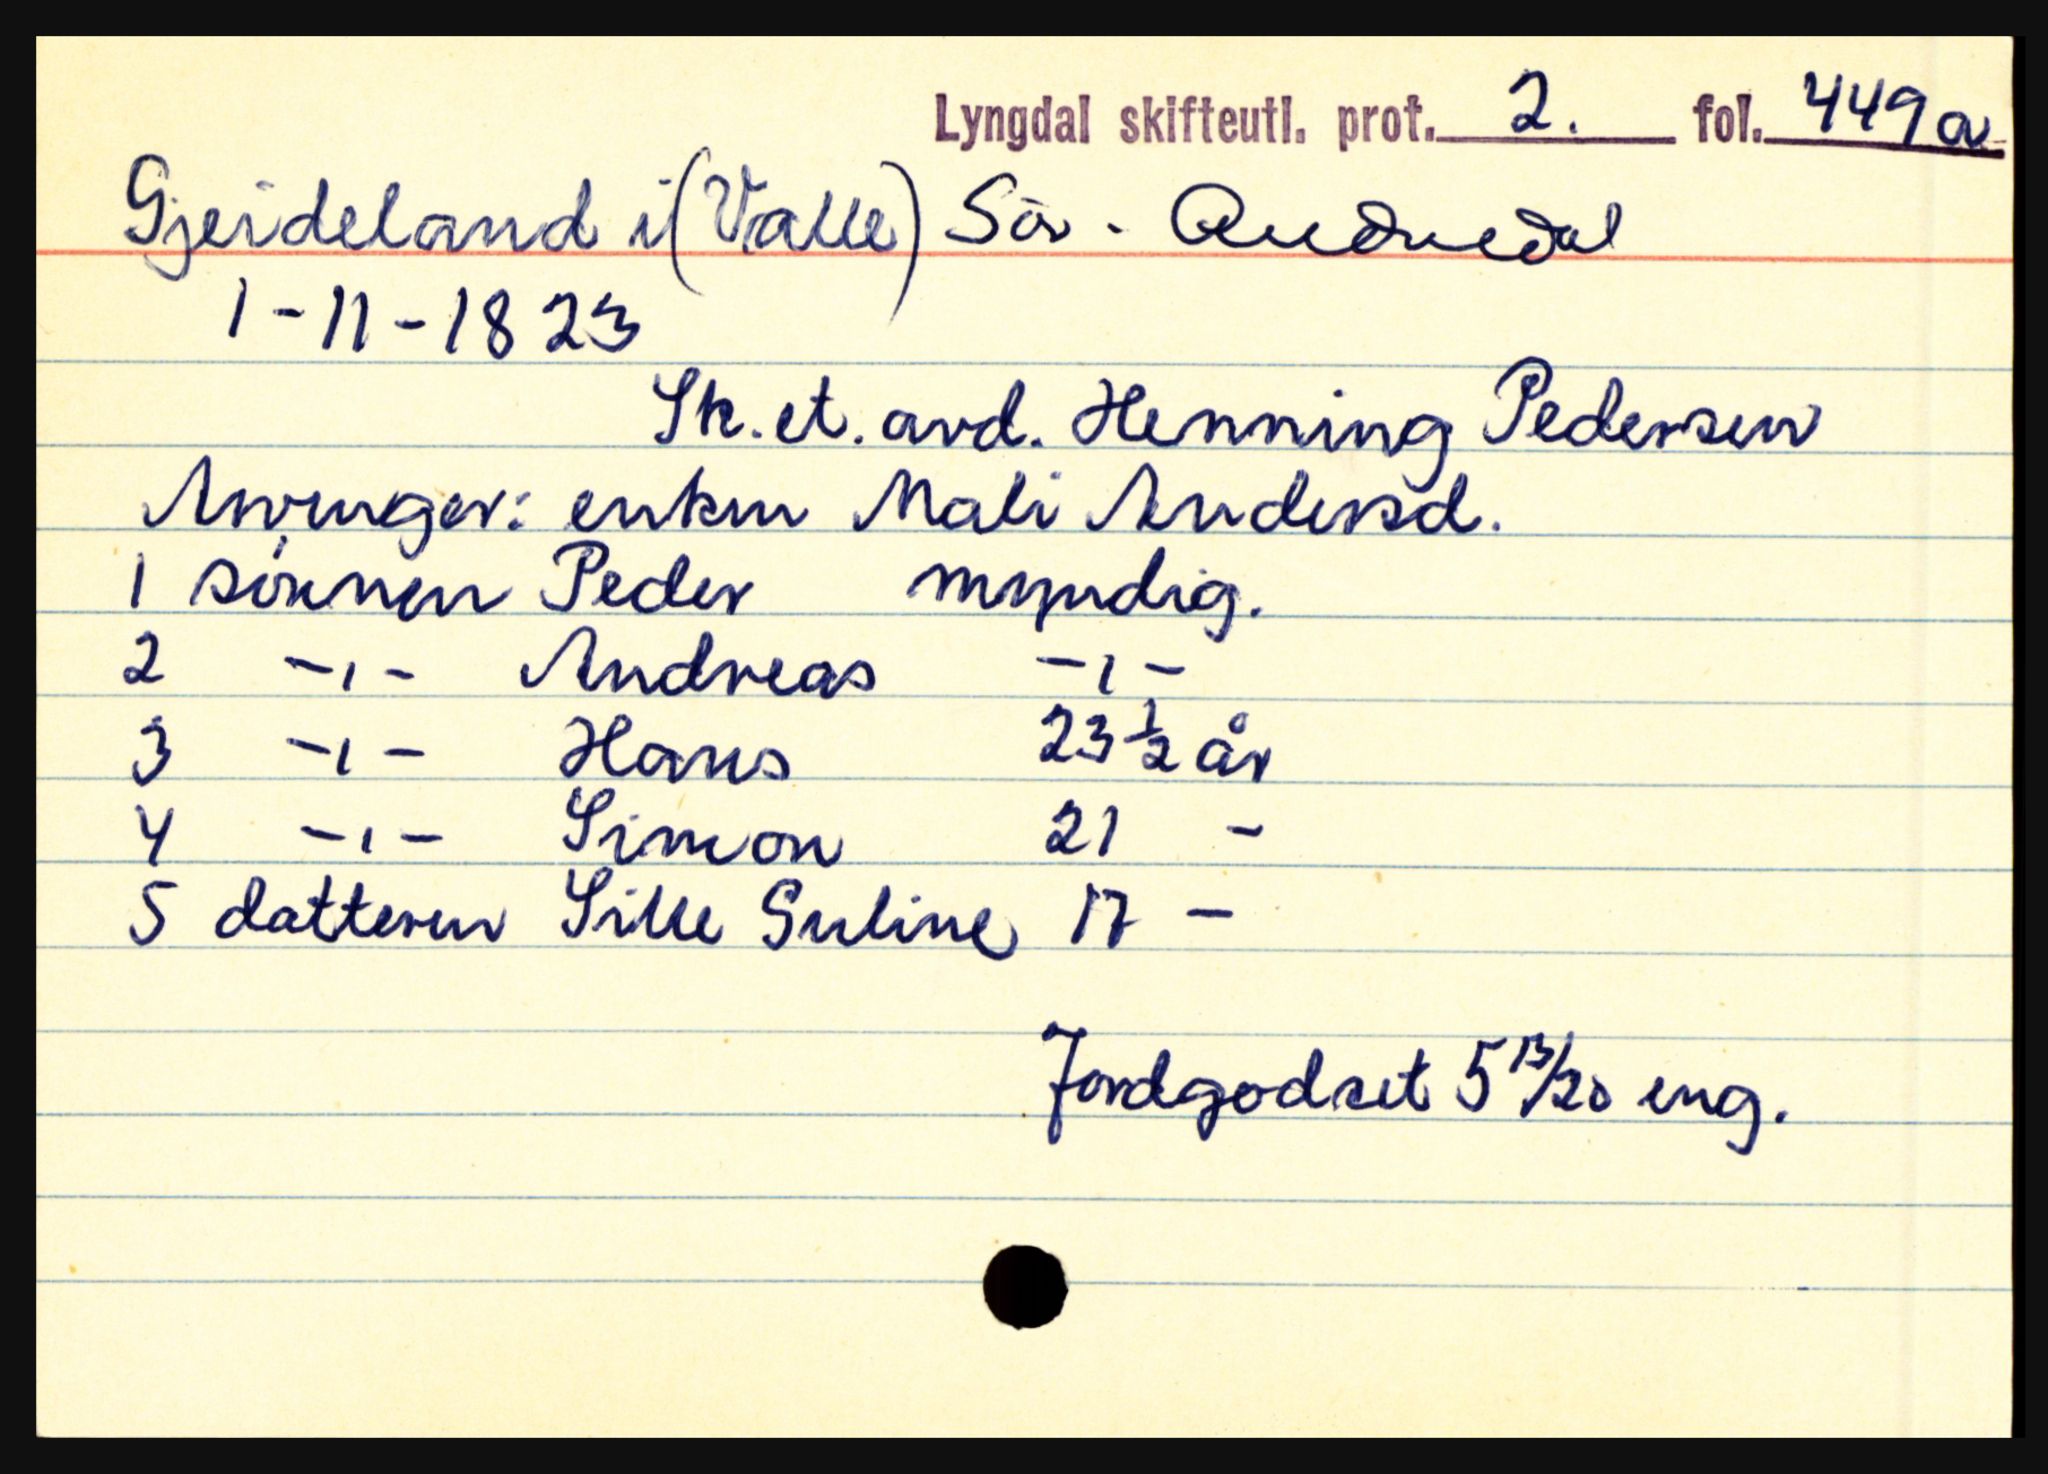 Lyngdal skifteutl. prot. 2. fol. 449a
Gjeideland i (Valle) Sör-Audnedal
1-11-1823
Sk. et. avd. Henning Pedersen
Arvinger: enken Mali Andersd.
1 sönnen Peder myndig.
2 -ı- Andreas -ı-
3 -ı- Hans 23 1/2 år
4 -ı- Simon 21 -
5 datteren Sille Guline 17 -
Jordgodset 5 13/20 eng.